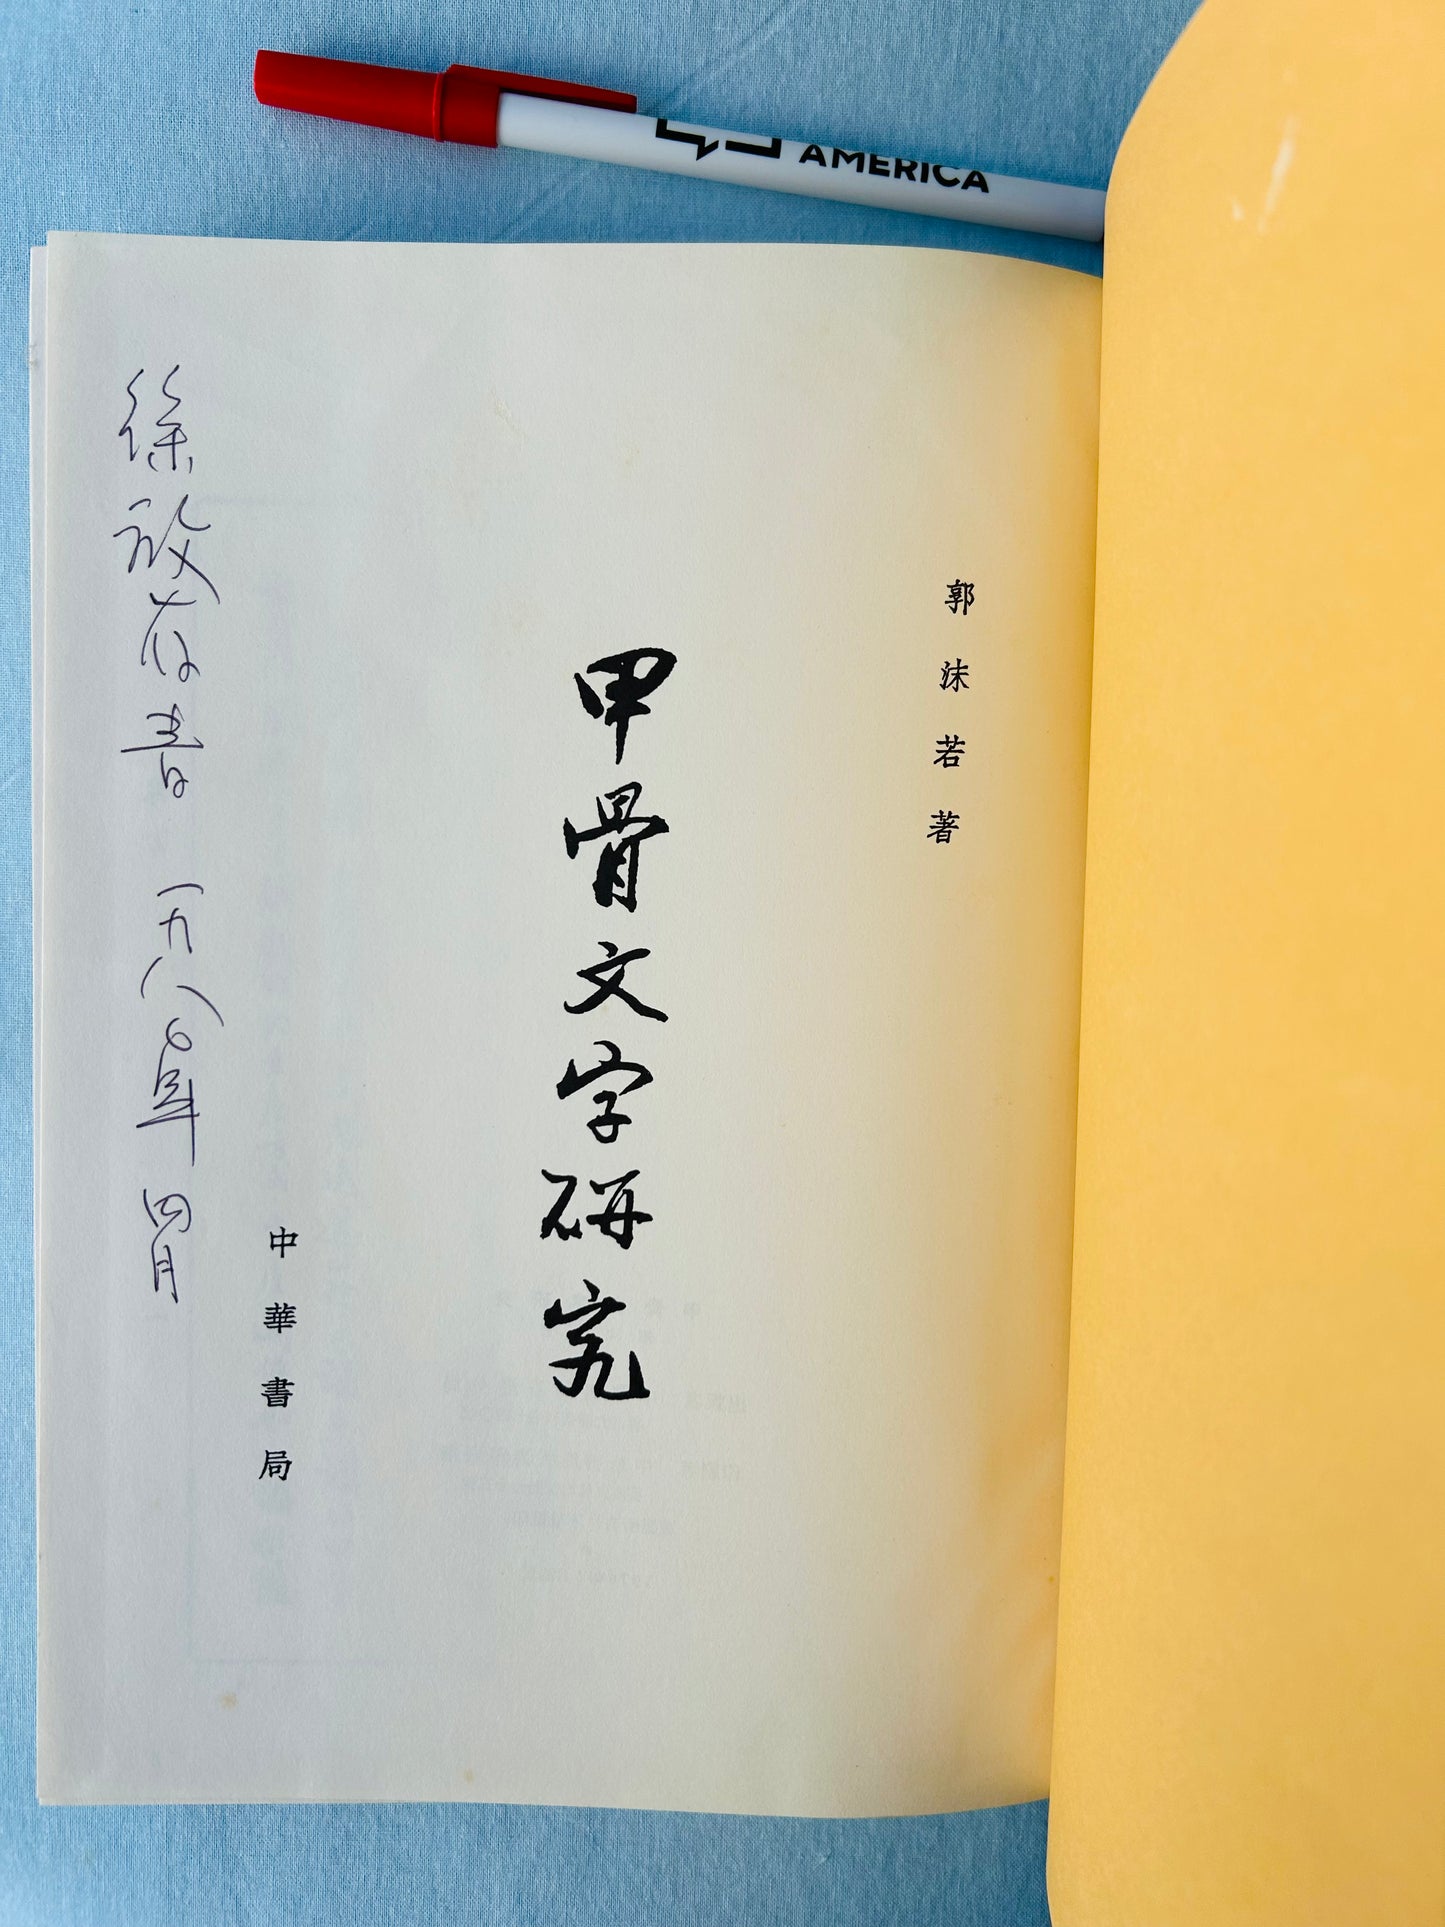 AMERICA
郭沫若著
甲骨文字研究
中華書局
徐放存書 一九八〇年四月